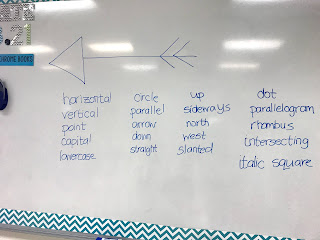 CHROME BOOKS
horizontal
vertical
point
capital
lowercase
circle
parallel
arrow
down
straight
up
sideways
north
west
slanted
dot
parallelogram
rhombus
intersecting
italic square